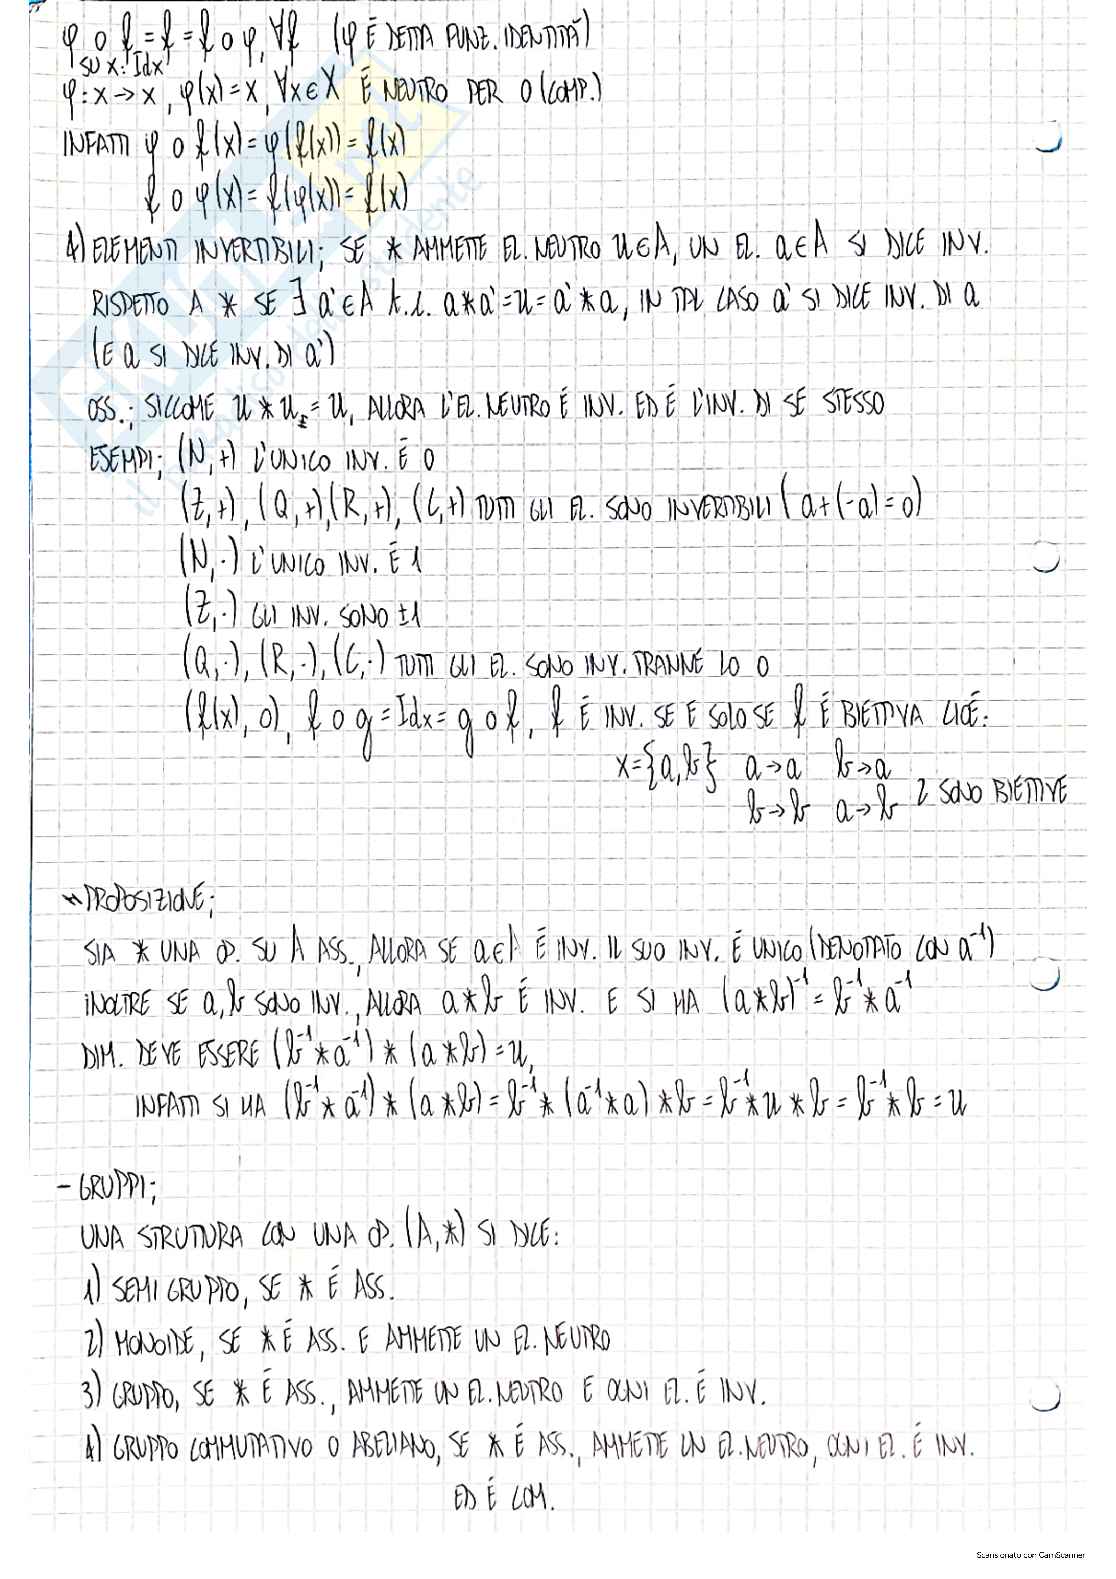 φ o f = f = f o φ, ∀f (φ È DETTA FUNZ. IDENTITÀ)
SU X: Idx
φ: X → X, φ(x) = x, ∀x ∈ X È NEUTRO PER O (COMP.)
INFATTI φ o f(x) = φ(f(x)) = f(x)
f o φ(x) = f(φ(x)) = f(x)
4) ELEMENTI INVERTIBILI; SE * AMMETTE EL. NEUTRO u ∈ A, UN EL. a ∈ A SI DICE INV.
RISPETTO A * SE ∃ a' ∈ A t.c. a * a' = u = a' * a, IN TAL CASO a' SI DICE INV. DI a
(E a SI DICE INV. DI a')
OSS.; SICCOME u * u = u, ALLORA L'EL. NEUTRO È INV. ED È L'INV. DI SE STESSO
ESEMPI; (N, +) L'UNICO INV. È 0
(Z, +), (Q, +), (R, +), (C, +) TUTTI GLI EL. SONO INVERTIBILI (a + (-a) = 0)
(N, ·) L'UNICO INV. È 1
(Z, ·) GLI INV. SONO ±1
(Q, ·), (R, ·), (C, ·) TUTTI GLI EL. SONO INV. TRANNE LO 0
(f(x), o), f o g = Idx = g o f, f È INV. SE E SOLO SE f È BIETTIVA CIOÈ:
X = {a, b} a → a b → a
b → b a → b 2 SONO BIETTIVE
* PROPOSIZIONE;
SIA * UNA OP. SU A ASS., ALLORA SE a ∈ A È INV. IL SUO INV. È UNICO (DENOTATO CON a⁻¹)
INOLTRE SE a, b SONO INV., ALLORA a * b È INV. E SI HA (a * b)⁻¹ = b⁻¹ * a⁻¹
DIM. DEVE ESSERE (b⁻¹ * a⁻¹) * (a * b) = u,
INFATTI SI HA (b⁻¹ * a⁻¹) * (a * b) = b⁻¹ * (a⁻¹ * a) * b = b⁻¹ * u * b = b⁻¹ * b = u
- GRUPPI;
UNA STRUTTURA CON UNA OP. (A, *) SI DICE:
1) SEMIGRUPPO, SE * È ASS.
2) MONOIDE, SE * È ASS. E AMMETTE UN EL. NEUTRO
3) GRUPPO, SE * È ASS., AMMETTE UN EL. NEUTRO E OGNI EL. È INV.
4) GRUPPO COMMUTATIVO O ABELIANO, SE * È ASS., AMMETTE UN EL. NEUTRO, OGNI EL. È INV.
ED È COM.
Scansionato con CamScanner